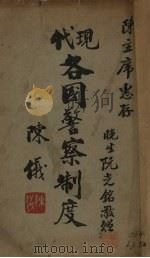 陳主席惠存
現代
各國警察制度
陳儀
晚生阮光銘敬贈